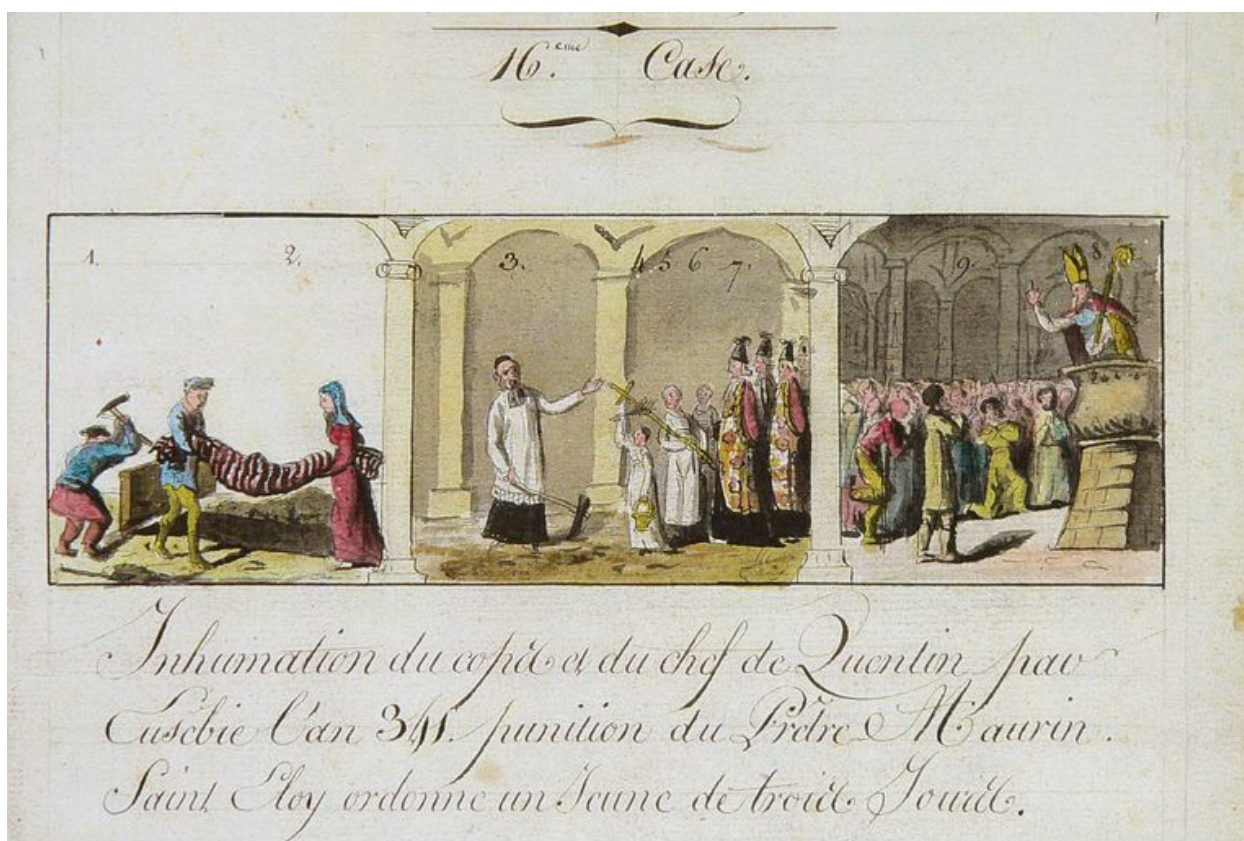 16.eme Case.
1. 2. 3. 4 5 6 7. 9. 8.
Inhumation du cops et du chef de Quentin par
Eusébie l'an 341. punition du Prêtre Maurin.
Saint Eloy ordonne un Jeune de trois Jours.